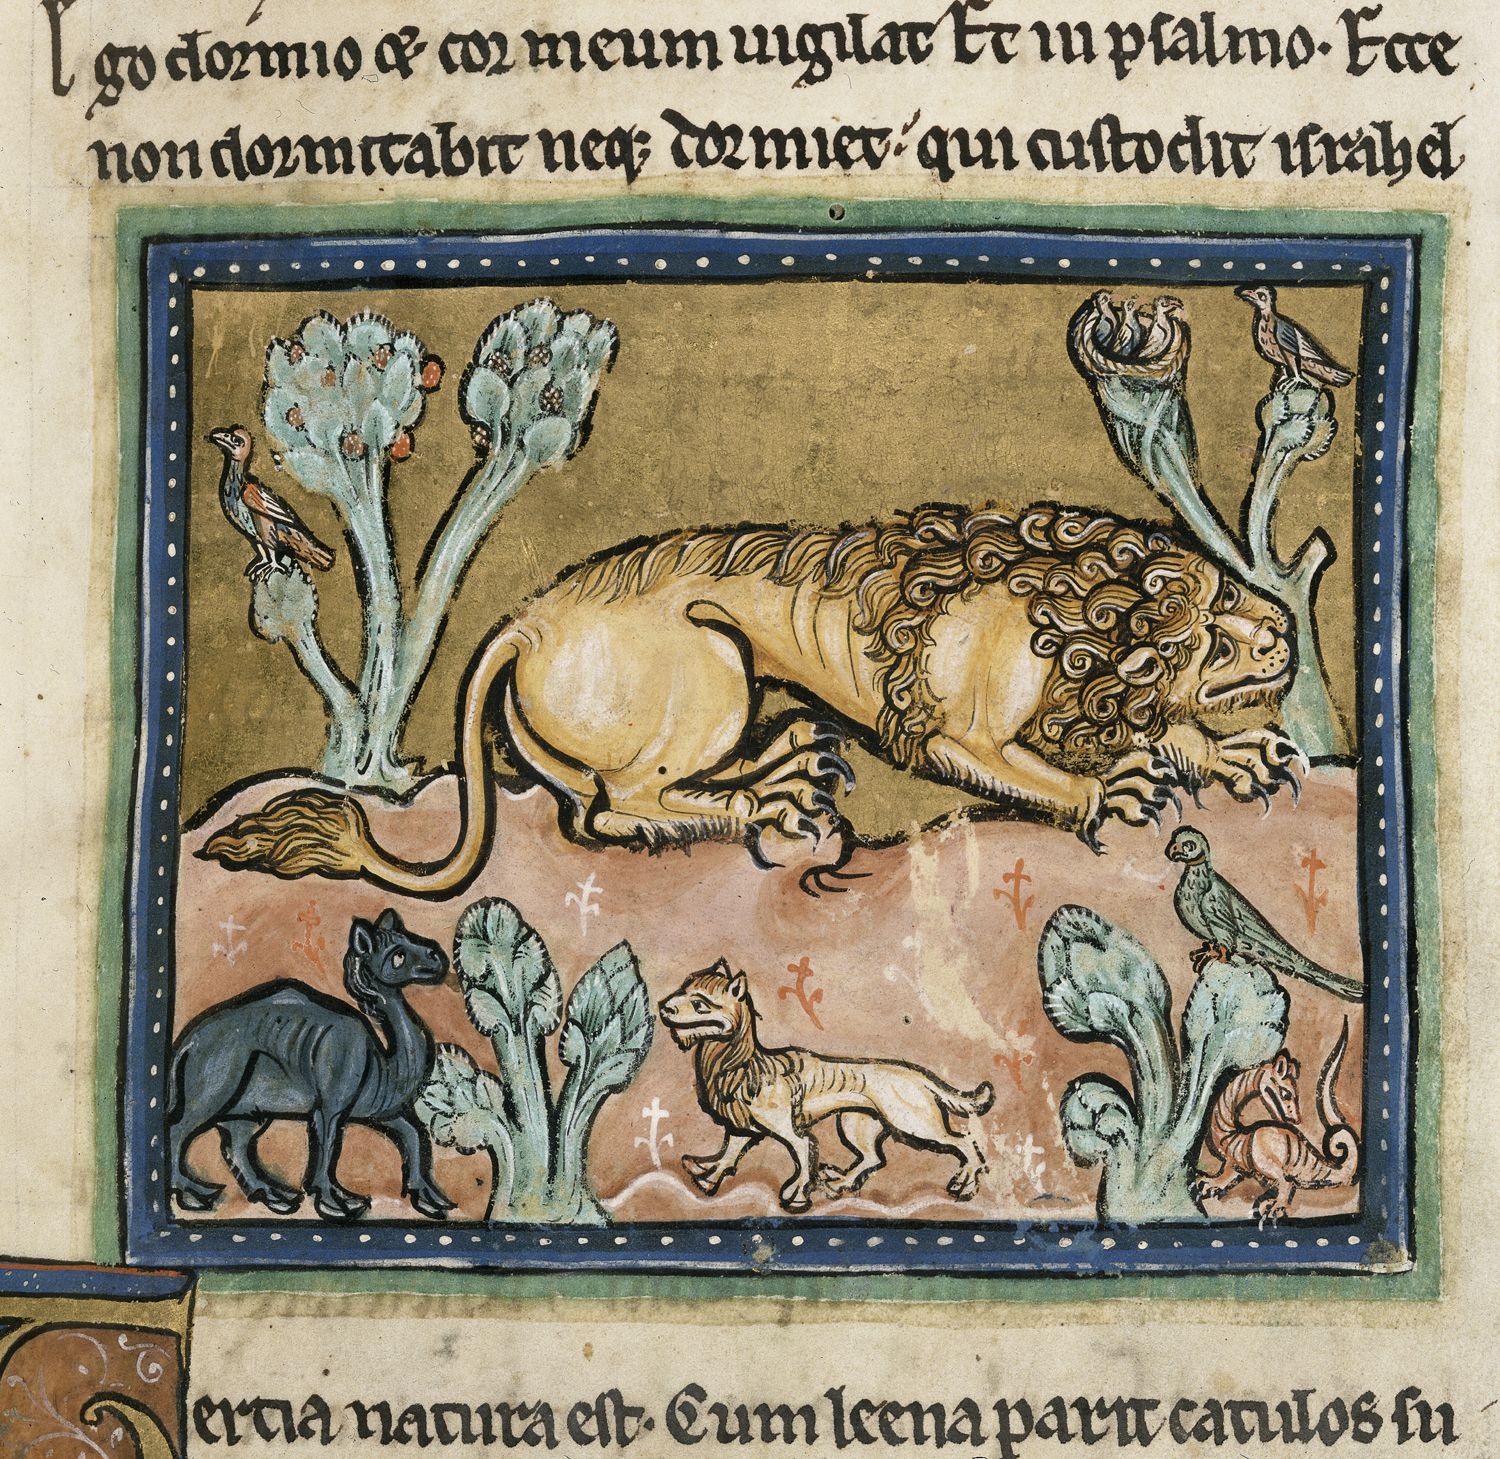 Ego dormio & cor meum uigilat Et in psalmo. Ecce
non dormitabit neq; dormiet. qui custodit israhel
Tertia natura est. Cum leena parit catulos su